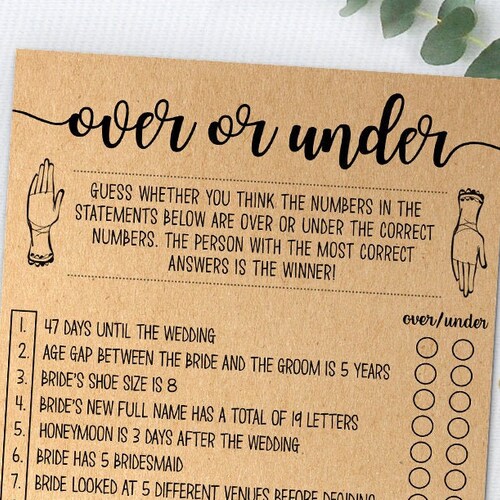 over or under
GUESS WHETHER YOU THINK THE NUMBERS IN THE
STATEMENTS BELOW ARE OVER OR UNDER THE CORRECT
NUMBERS. THE PERSON WITH THE MOST CORRECT
ANSWERS IS THE WINNER!
over/under
1. 47 DAYS UNTIL THE WEDDING
2. AGE GAP BETWEEN THE BRIDE AND THE GROOM IS 5 YEARS
3. BRIDE'S SHOE SIZE IS 8
4. BRIDE'S NEW FULL NAME HAS A TOTAL OF 19 LETTERS
5. HONEYMOON IS 3 DAYS AFTER THE WEDDING
6. BRIDE HAS 5 BRIDESMAID
7. BRIDE LOOKED AT 5 DIFFERENT VENUES BEFORE DECIDING